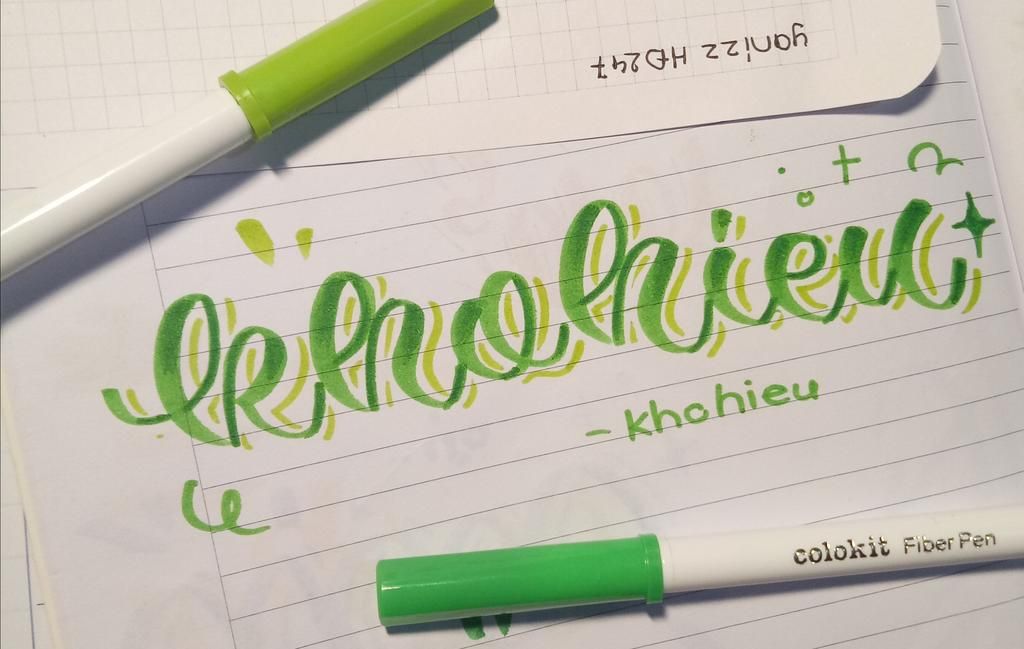 yanizz HD247
khohieu
- khohieu
colokit Fiber Pen